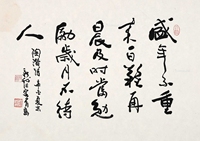 盛年不重
来一日難再
晨及时當勉
勵歲月不待
人
陶潛詩